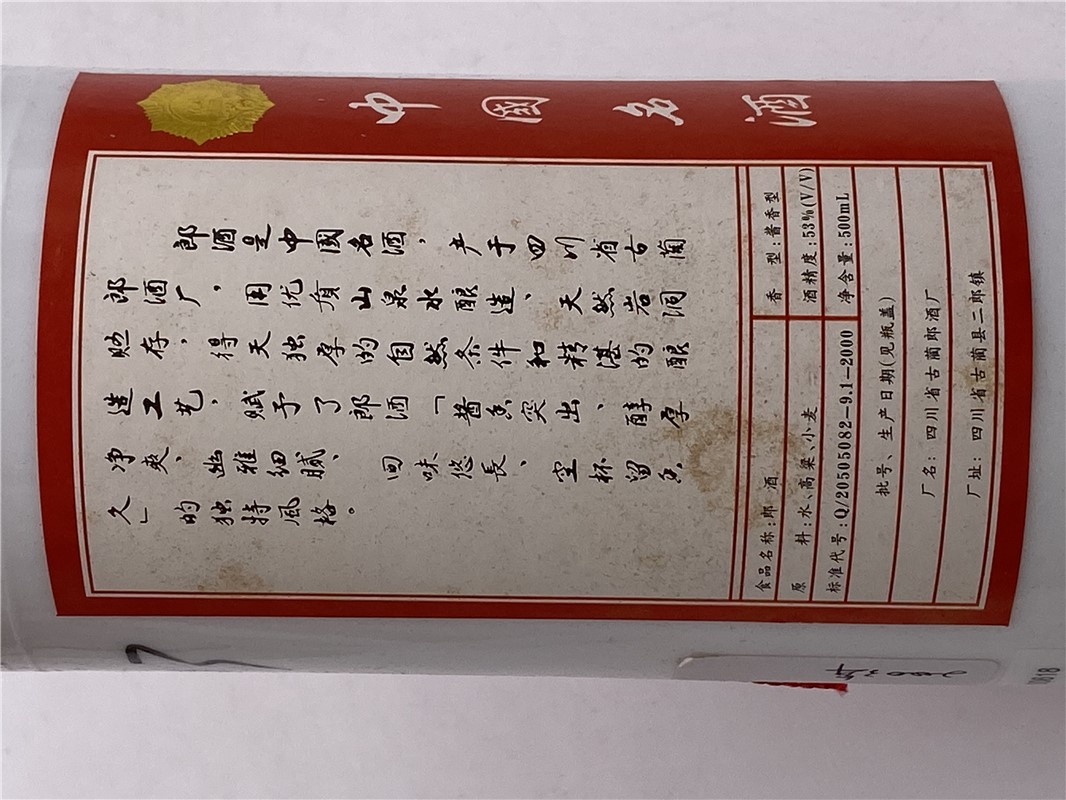 中國名酒
郎酒是中國名酒，产于四川省古蔺
郎酒厂，用优质山泉水酿造、天然岩洞
贮存，得天独厚的自然条件和精湛的酿
造工艺，赋予了郎酒「酱香突出、醇厚
净爽、幽雅细腻、回味悠長、空杯留香
久」的独特风格。
食品名称:郎酒 香型:酱香型
原料:水、高粱、小麦 酒精度:53%(V/V)
标准代号:Q/20505082-9.1-2000 净含量:500mL
批号、生产日期(见瓶盖)
厂名:四川省古蔺郎酒厂
厂址:四川省古蔺县二郎镇